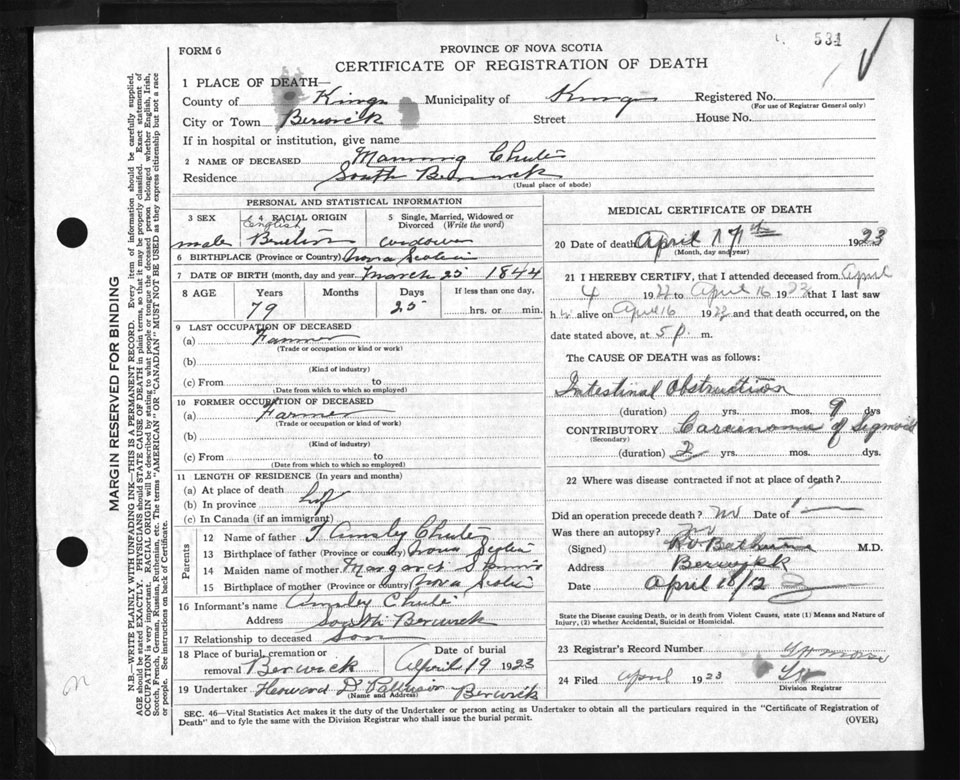 531
FORM 6
PROVINCE OF NOVA SCOTIA
CERTIFICATE OF REGISTRATION OF DEATH
1 PLACE OF DEATH—
County of Kings Municipality of Kings Registered No.
(For use of Registrar General only)
City or Town Berwick Street House No.
If in hospital or institution, give name
2 NAME OF DECEASED Manning Chute
Residence South Berwick
(Usual place of abode)
PERSONAL AND STATISTICAL INFORMATION
3 SEX 4 RACIAL ORIGIN 5 Single, Married, Widowed or Divorced (Write the word)
English
male widower
6 BIRTHPLACE (Province or Country) Nova Scotia
7 DATE OF BIRTH (month, day and year) March 25 1844
8 AGE Years Months Days If less than one day,
79 25 hrs. or min.
9 LAST OCCUPATION OF DECEASED
(a) Farmer
(Trade or occupation or kind or work)
(b)
(Kind of industry)
(c) From to
(Date from which to which so employed)
10 FORMER OCCUPATION OF DECEASED
(a) Farmer
(Trade or occupation or kind or work)
(b)
(Kind of industry)
(c) From to
(Date from which to which so employed)
11 LENGTH OF RESIDENCE (In years and months)
(a) At place of death
(b) In province life
(c) In Canada (if an immigrant)
Parents
12 Name of father Chute
13 Birthplace of father (Province or country) Nova Scotia
14 Maiden name of mother Margaret
15 Birthplace of mother (Province or country) Nova Scotia
16 Informant's name Chute
Address South Berwick
17 Relationship to deceased Son
18 Place of burial, cremation or removal Berwick Date of burial April 19 1923
19 Undertaker Berwick
(Name and Address)
MEDICAL CERTIFICATE OF DEATH
20 Date of death April 17th 1923
(Month, day and year)
21 I HEREBY CERTIFY, that I attended deceased from April
4 19 to April 16 19 that I last saw
h alive on Apr 16 19 and that death occurred, on the
date stated above, at 5 p. m.
The CAUSE OF DEATH was as follows:
Intestinal Obstruction
(duration) yrs. mos. 9 dys
CONTRIBUTORY Carcinoma of Sigmoid
(Secondary)
(duration) 2 yrs. mos. dys.
22 Where was disease contracted if not at place of death?
Did an operation precede death? no Date of
Was there an autopsy? no
(Signed) M.D.
Address Berwick
Date April 18/
State the Disease causing Death, or in death from Violent Causes, state (1) Means and Nature of
Injury, (2) whether Accidental, Suicidal or Homicidal.
23 Registrar's Record Number
24 Filed April 1923
Division Registrar
SEC. 46—Vital Statistics Act makes it the duty of the Undertaker or person acting as Undertaker to obtain all the particulars required in the "Certificate of Registration of
Death" and to fyle the same with the Division Registrar who shall issue the burial permit.
(OVER)
MARGIN RESERVED FOR BINDING
N.B.—WRITE PLAINLY WITH UNFADING INK—THIS IS A PERMANENT RECORD. Every item of information should be carefully supplied.
AGE should be stated EXACTLY. PHYSICIANS should STATE CAUSE OF DEATH in plain terms, so that it may be properly classified. Exact statement of
OCCUPATION is very important. RACIAL ORIGIN will be described by stating to what people or tongue the deceased person belonged whether English, Irish,
Scotch, French, German, Russian, Ruthenian, etc. The terms "AMERICAN" OR "CANADIAN" MUST NOT BE USED as they express citizenship but not a race
or people. See instructions on back of Certificate.